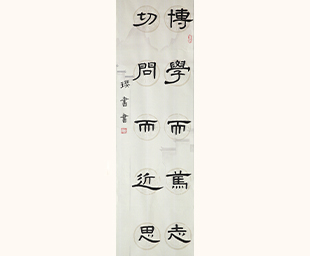 博學而篤志
切問而近思
瑛書書